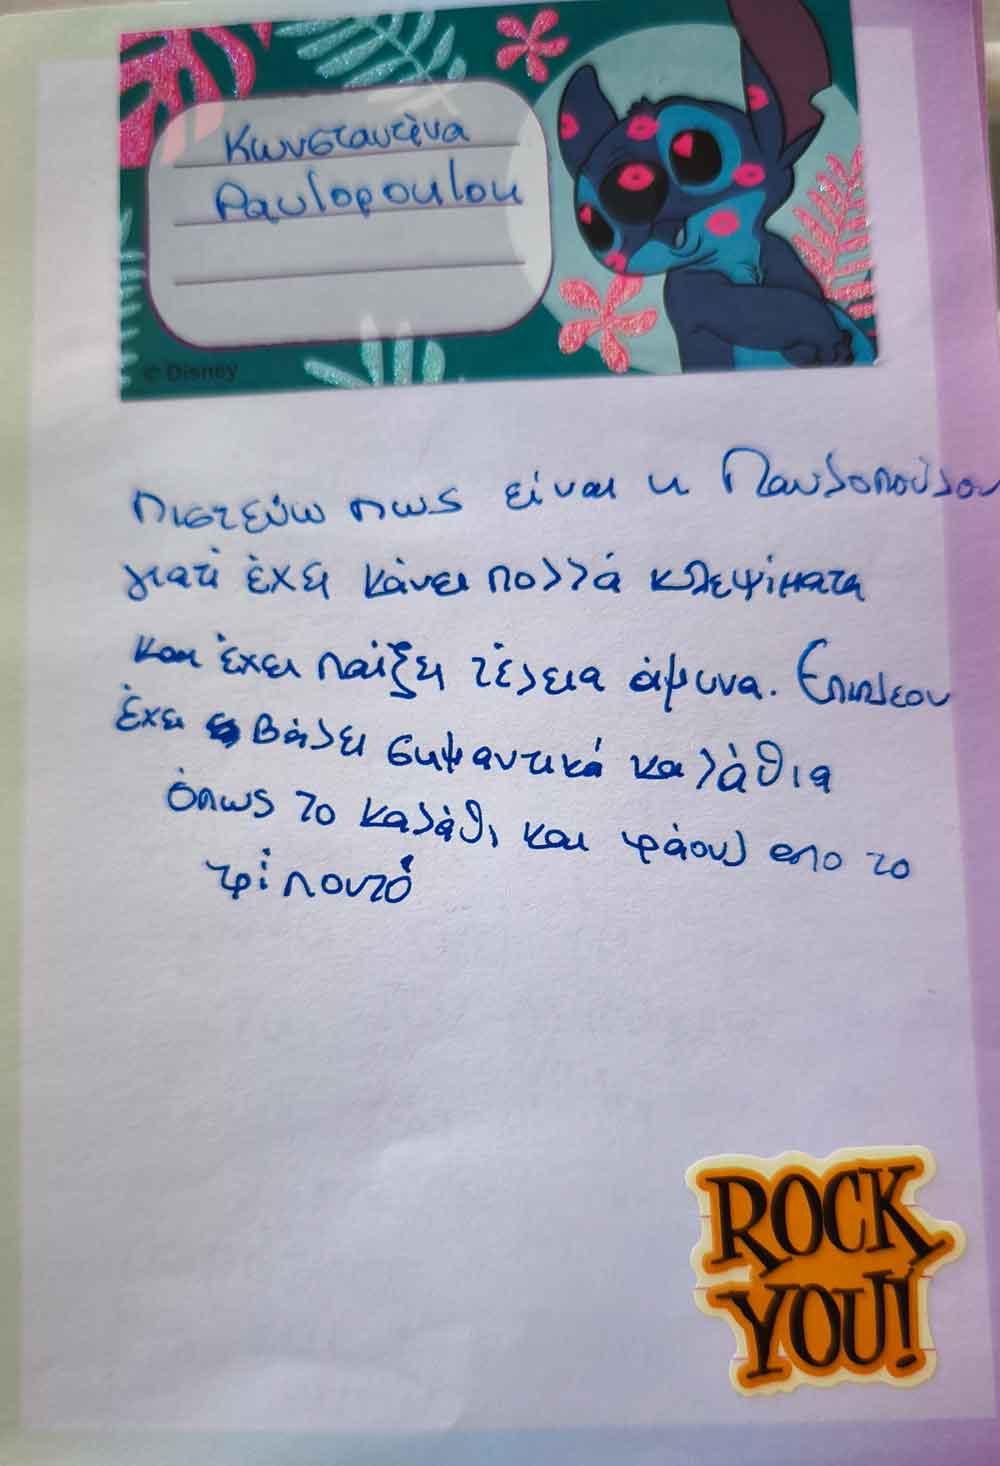 Κωνσταντίνα
Pavlopoulou
© Disney
Πιστεύω πως είναι η Παυλοπούλου
γιατί έχει κάνει πολλά κλεψίματα
και έχει παίξει τέλεια άμυνα. Επιπλεον
έχει βάλει σημαντικά καλάθια
όπως το καλάθι και φάουλ απο το
τρί ποντό
ROCK
YOU!